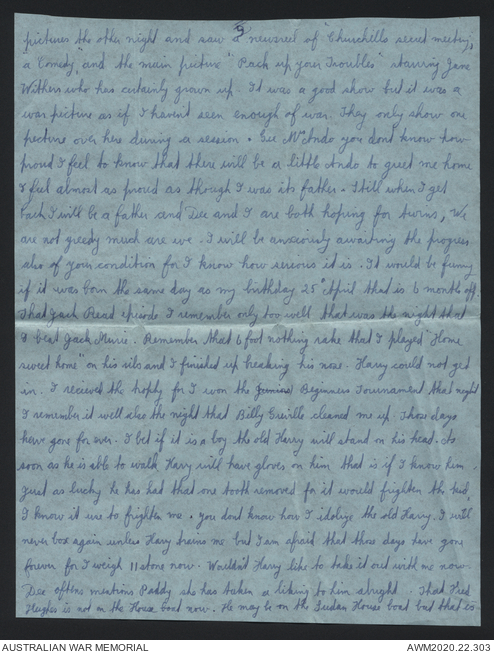 9
pictures the other night and saw a newsreel of "Churchills secret meeting,"
a "Comedy", and the main picture "Pack up your Troubles" starring Jane
Withers who has certainly grown up. It was a good show but it was a
war picture as if I haven't seen enough of war. They only show one
picture over here during a session. Gee Mrs Ando you dont know how
proud I feel to know that there will be a little Ando to greet me home
I feel almost as proud as though I was its father. Still when I get
back I will be a father and Dee and I are both hoping for twins, We
are not greedy much are we. I will be anxiously awaiting the progress
also of your condition for I know how serious it is. It would be funny
if it was born the same day as my birthday 25th April that is 6 months off.
That Jack Read episode I remember only too well that was the night that
I beat Jack Murrie. Remember that 6 foot nothing rake that I played "Home
sweet home" on his ribs and I finished up breaking his nose. Harry could not get
in. I recieved the trophy for I won the Beginners Tournament that night
I remember it well also the night that Billy cleaned me up. Those days
have gone for ever. I bet if it is a boy the old Harry will stand on his head. As
soon as he is able to walk Harry will have gloves on him that is if I know him.
Just as lucky he has had that one tooth removed for it would frighten the kid,
I know it use to frighten me. You dont know how I idolize the old Harry. I will
never box again unless Harry trains me but I am afraid that those days have gone
forever for I weigh 11 stone now. Wouldn't Harry like to take it out with me now.
Dee oftens mentions Paddy she has taken a liking to him alright. That Fred
Hughes is not on the House boat now. He may be on the Sudan House boat but that is
AUSTRALIAN WAR MEMORIAL
AWM2020.22.303